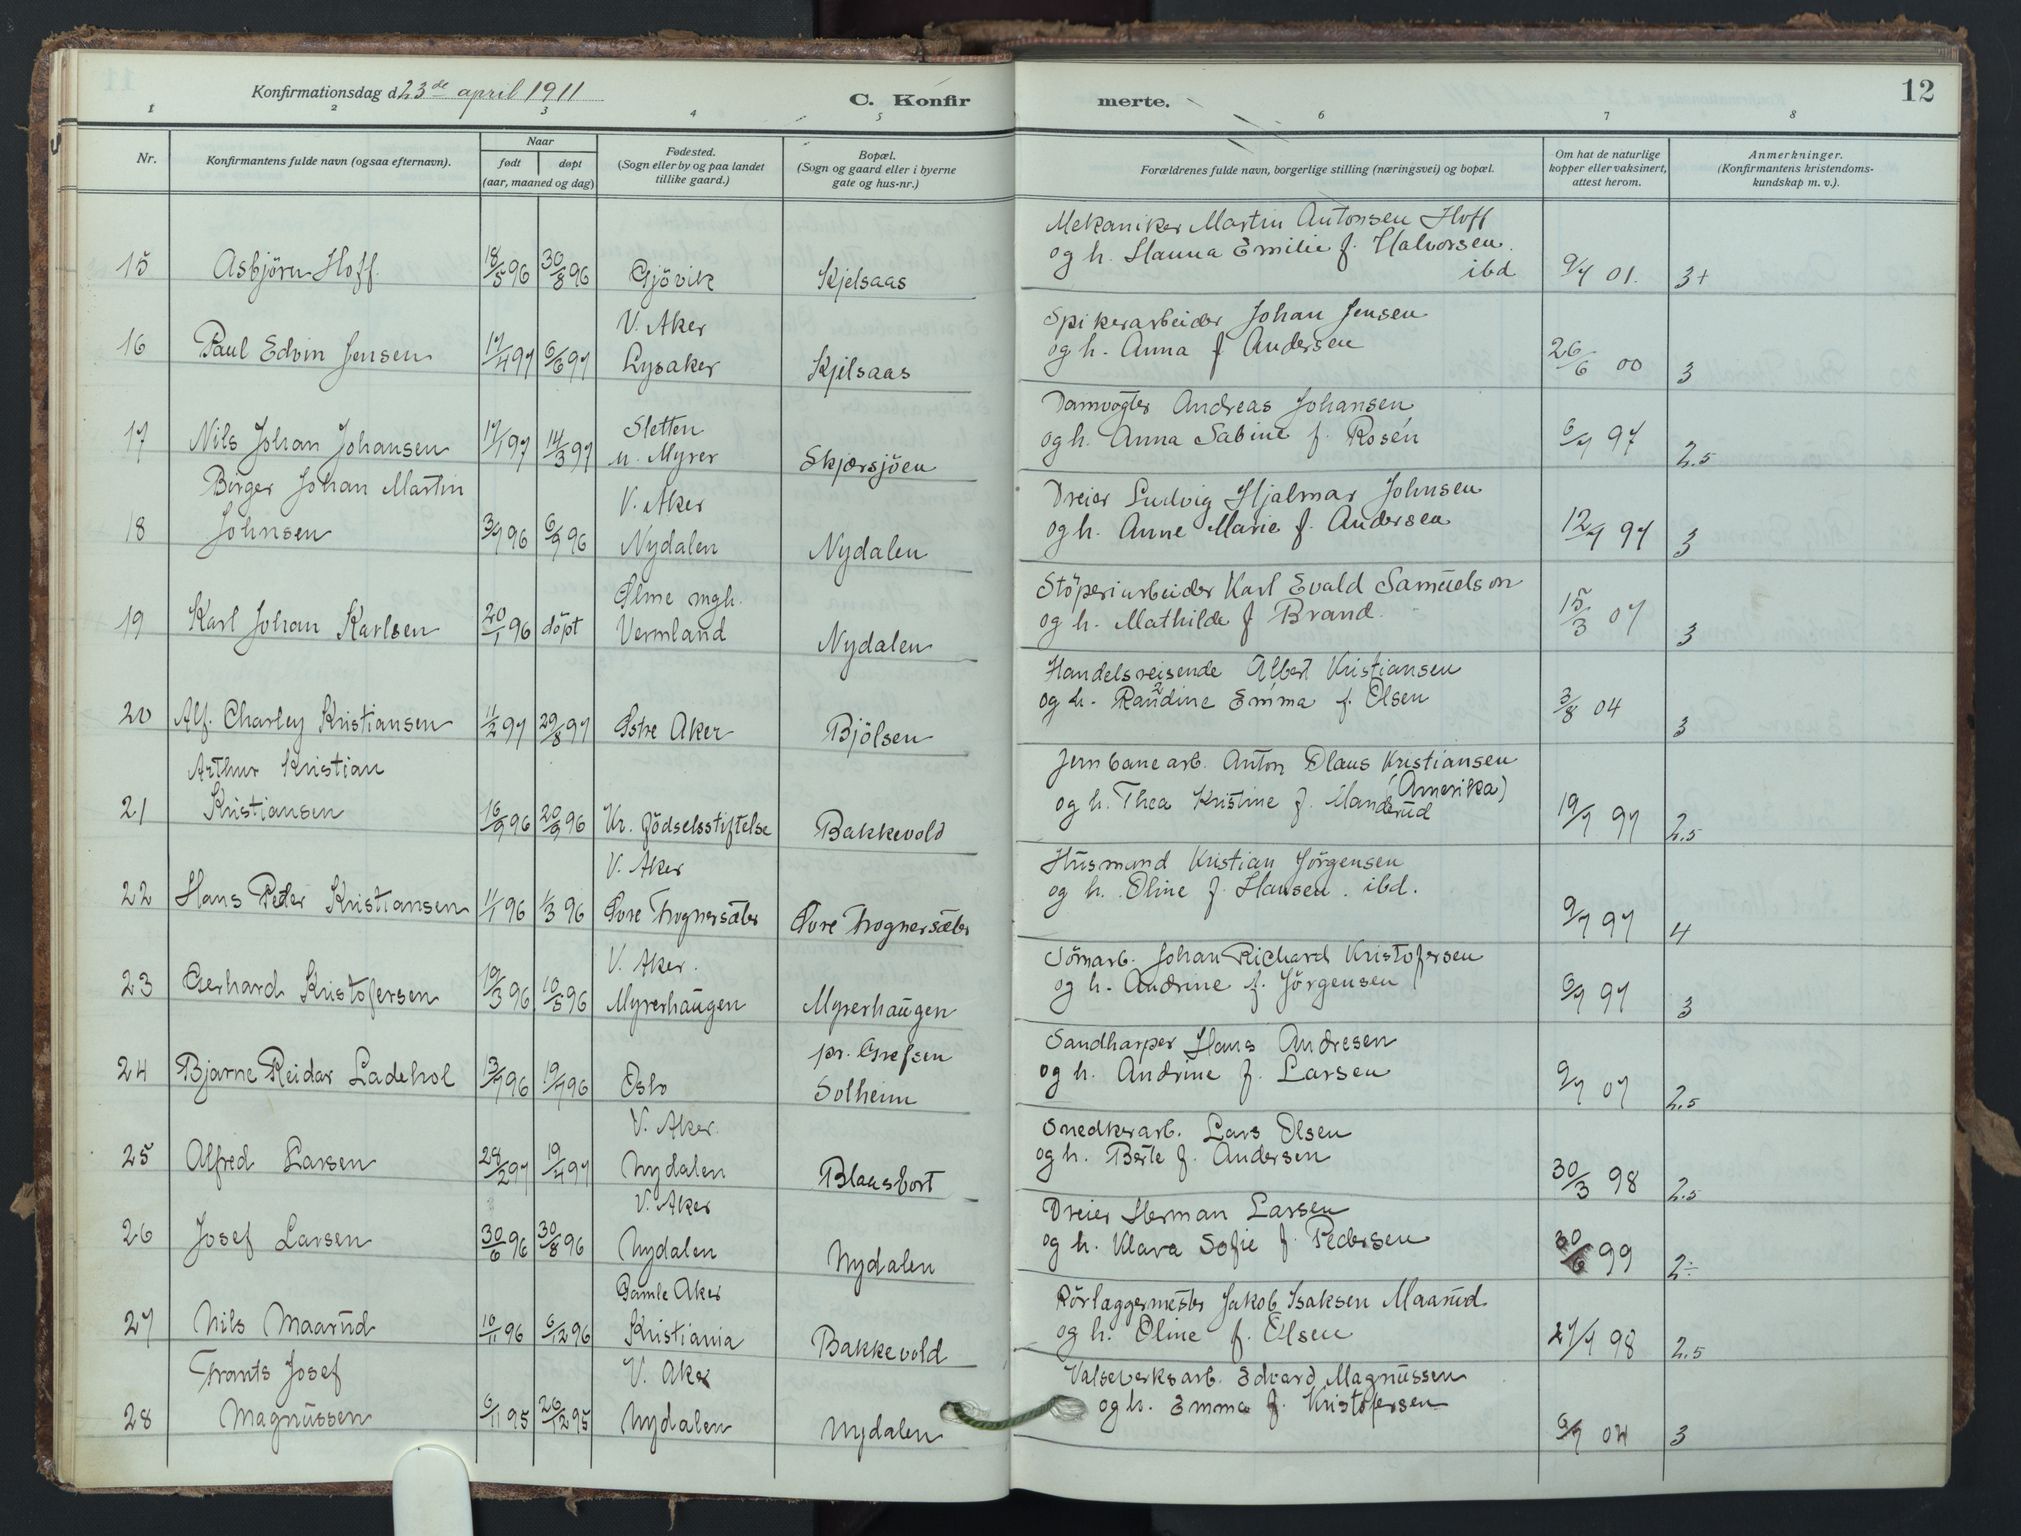 Konfirmationsdag d. 23de april 1911
C. Konfirmerte.
12
1 2 3 4 5 6 7 8
Nr.
Konfirmantens fulde navn (ogsaa efternavn).
Naar
født
døpt
(aar, maaned og dag)
Fødested.
(Sogn eller by og paa landet
tillike gaard.)
Bopæl.
(Sogn og gaard eller i byerne
gate og hus-nr.)
Forældrenes fulde navn, borgerlige stilling (næringsvei) og bopæl.
Om hat de naturlige
kopper eller vaksinert,
attest herom.
Anmerkninger.
(Konfirmantens kristendoms-
kundskap m. v.).
Mekaniker Martin Antonsen Hoff
15 Asbjörn Hoff 18/5 96 30/8 96 Gjövik Kjelsaas og h. Hanna Emilie f. Halvorsen.
ibd 9/7 01. 3+
V. Aker Spikerarbeider Johan Jensen
16 Paul Edvin Jensen 17/4 97 6/6 97 Lysaker Kjelsaas og h. Anna f Andersen 26/6 00 3
Sletten Damvogter Andreas Johansen
17 Nils Johan Johansen 17/1 97 14/3 97 u. Myrer Skjærsjöen og h. Anna Sabine f. Rosén 6/7 97 2.5
Birger Johan Martin V. Aker Dreier Ludvig Hjalmar Johnsen
18 Johnsen 3/7 96 6/9 96 Nydalen Nydalen og h. Anne Marie f. Andersen 12/7 97 3
Ölme mgh. Stöperiarbeider Karl Evald Samuelson
19 Karl Johan Karlsen 20/1 96 döpt Vermland Nydalen og h. Mathilde f Brand. 15/3 07 3
Handelsreisende Albert Kristiansen
20 Alf. Charley Kristiansen 11/2 97 29/8 97 Östre Aker Bjölsen og h. Randine Emma f. Olsen 3/8 04 3
Arthur Kristian Jernbanearb. Anton Olaus Kristiansen
(Amerika)
21 Kristiansen 16/9 96 20/9 96 Kr. födselsstiftelse Bakkevold og h. Thea Kristine f. Manderud 19/7 97 2.5
V. Aker Husmand Kristian Jörgensen
22 Hans Peder Kristiansen 11/1 96 1/3 96 Övre Frognersæter Övre Frognersæter og h. Oline f. Hansen. ibd. 9/7 97 4
V. Aker. Sömarb. Johan Richard Kristofersen
23 Gerhard Kristofersen 19/3 96 10/5 96 Myrerhaugen Myrerhaugen og h. Andrine f. Jörgensen 6/7 97 3
pr. Grefsen Sandharper Hans Andresen
24 Bjarne Reidar Ladehol 13/7 96 19/7 96 Oslo Solheim og h. Andrine f. Larsen 9/7 07 2.5
V. Aker. Snedkerarb. Lars Olsen
25 Alfred Larsen 28/2 97 19/4 97 Nydalen Blaasbort og h. Berte f. Andersen 30/3 98 2.5
V. Aker Dreier Herman Larsen
26 Josef Larsen 30/6 96 30/8 96 Nydalen Nydalen og h. Klara Sofie f. Pedersen 30/6 99 2÷
Gamle Aker Rörlæggermester Jakob Isaksen Maarud
27 Nils Maarud 10/11 96 6/12 96 Kristiania Bakkevold og h. Oline f. Olsen 27/7 98 2.5
Frants Josef V. Aker Valseverksarb. Edvard Magnussen
28 Magnussen 6/11 95 26/12 95 Nydalen Nydalen og h. Emma f. Kristofersen 6/7 04 3